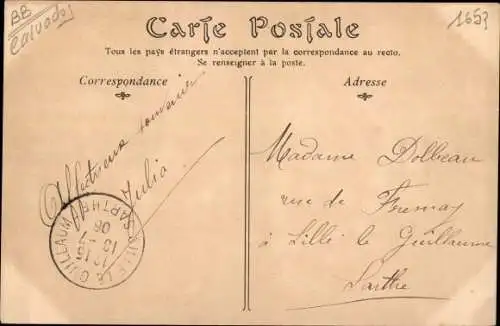 BB
Calvados
1653
Carte Postale
Tous les pays étrangers n'acceptent par la correspondance au recto.
Se renseigner à la poste.
Correspondance
Adresse
Affectueux souvenir
Julia
Madame Dolbeau
rue de Fresnay
à Sillé le Guillaume
Sarthe
SILLÉ LE GUILLAUME
SARTHE
12 15
13
06